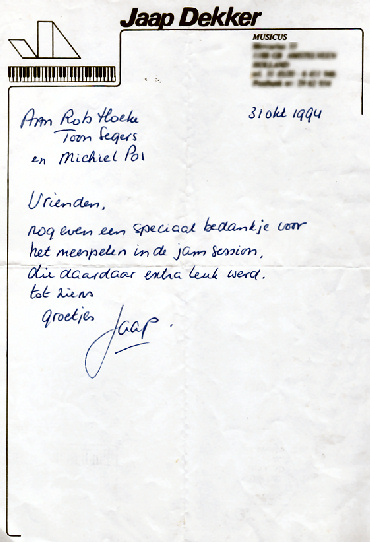 Jaap Dekker
MUSICUS
Aan Rob Hoeke
Toon Segers
en Michiel Pos
31 okt 1994
Vrienden,
nog even een speciaal bedankje voor
het meespelen in de jam session,
die daardaar extra leuk werd.
tot ziens
groetjes Jaap.